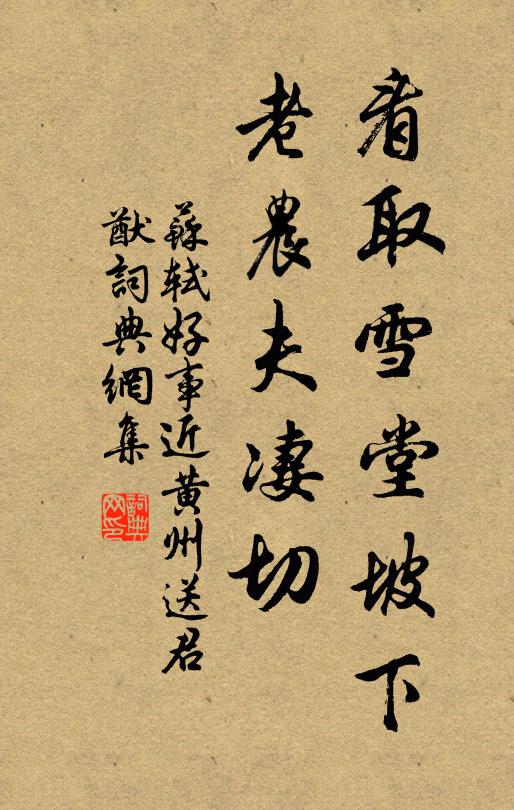 看取雪堂坡下
老農夫凄切
蘇軾好事近黃州送君
猷詞典網集
詞典
网印